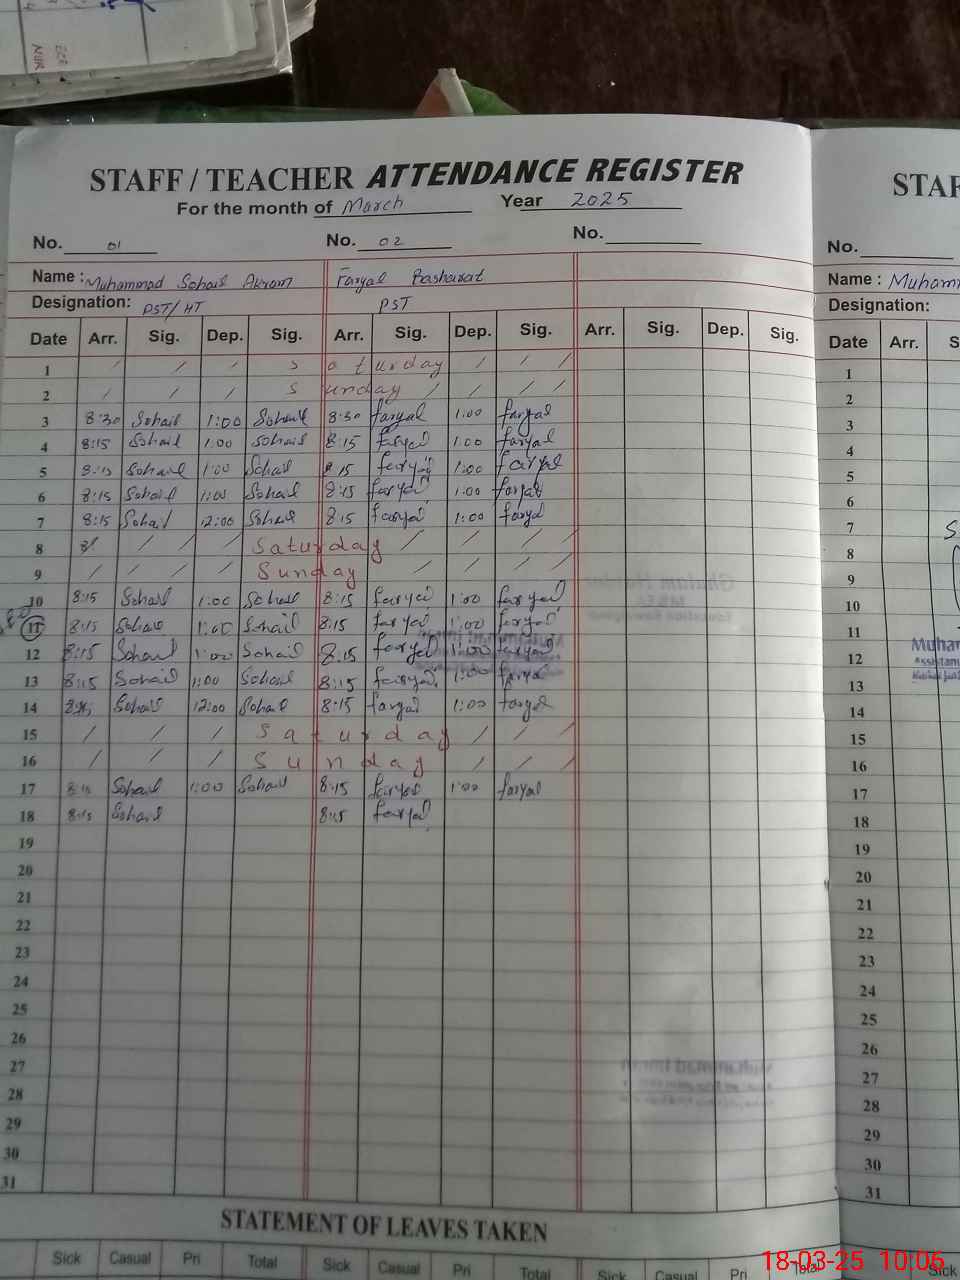 STAFF / TEACHER ATTENDANCE REGISTER
For the month of March Year 2025
No. 01 No. 02 No.
Name : Muhammad Sohail Akram Faryal Basharat
Designation: PST/HT PST
Date Arr. Sig. Dep. Sig. Arr. Sig. Dep. Sig. Arr. Sig. Dep. Sig.
1 / / / Saturday / / /
2 / / / Sunday / / / /
3 8:30 Sohail 1:00 Sohail 8:30 faryal 1:00 faryal
4 8:15 Sohail 1:00 Sohail 8:15 faryal 1:00 faryal
5 8:15 Sohail 1:00 Sohail 8:15 faryal 1:00 faryal
6 8:15 Sohail 1:00 Sohail 8:15 faryal 1:00 faryal
7 8:15 Sohail 12:00 Sohail 8:15 faryal 1:00 faryal
8 / / / Saturday / / / /
9 / / / / Sunday / / / /
10 8:15 Sohail 1:00 Sohail 8:15 faryal 1:00 faryal
11 8:15 Sohail 1:00 Sohail 8:15 faryal 1:00 faryal
12 8:15 Sohail 1:00 Sohail 8:15 faryal 1:00 faryal
13 8:15 Sohail 1:00 Sohail 8:15 faryal 1:00 faryal
14 Sohail 12:00 Sohail 8:15 faryal 1:00 faryal
15 / / / Saturday / / /
16 / / / Sunday / / /
17 8:15 Sohail 1:00 Sohail 8:15 faryal 1:00 faryal
18 8:15 Sohail 8:15 faryal
19
20
21
22
23
24
25
26
27
28
29
30
31
STATEMENT OF LEAVES TAKEN
Sick Casual Pri Total Sick Casual Pri Total Sick Casual Pri Total
STAF
No.
Name : Muhamm
Designation:
Date Arr. S
1
2
3
4
5
6
7
8
9
10
11
12
13
14
15
16
17
18
19
20
21
22
23
24
25
26
27
28
29
30
31
Sick
18-03-25 10:06